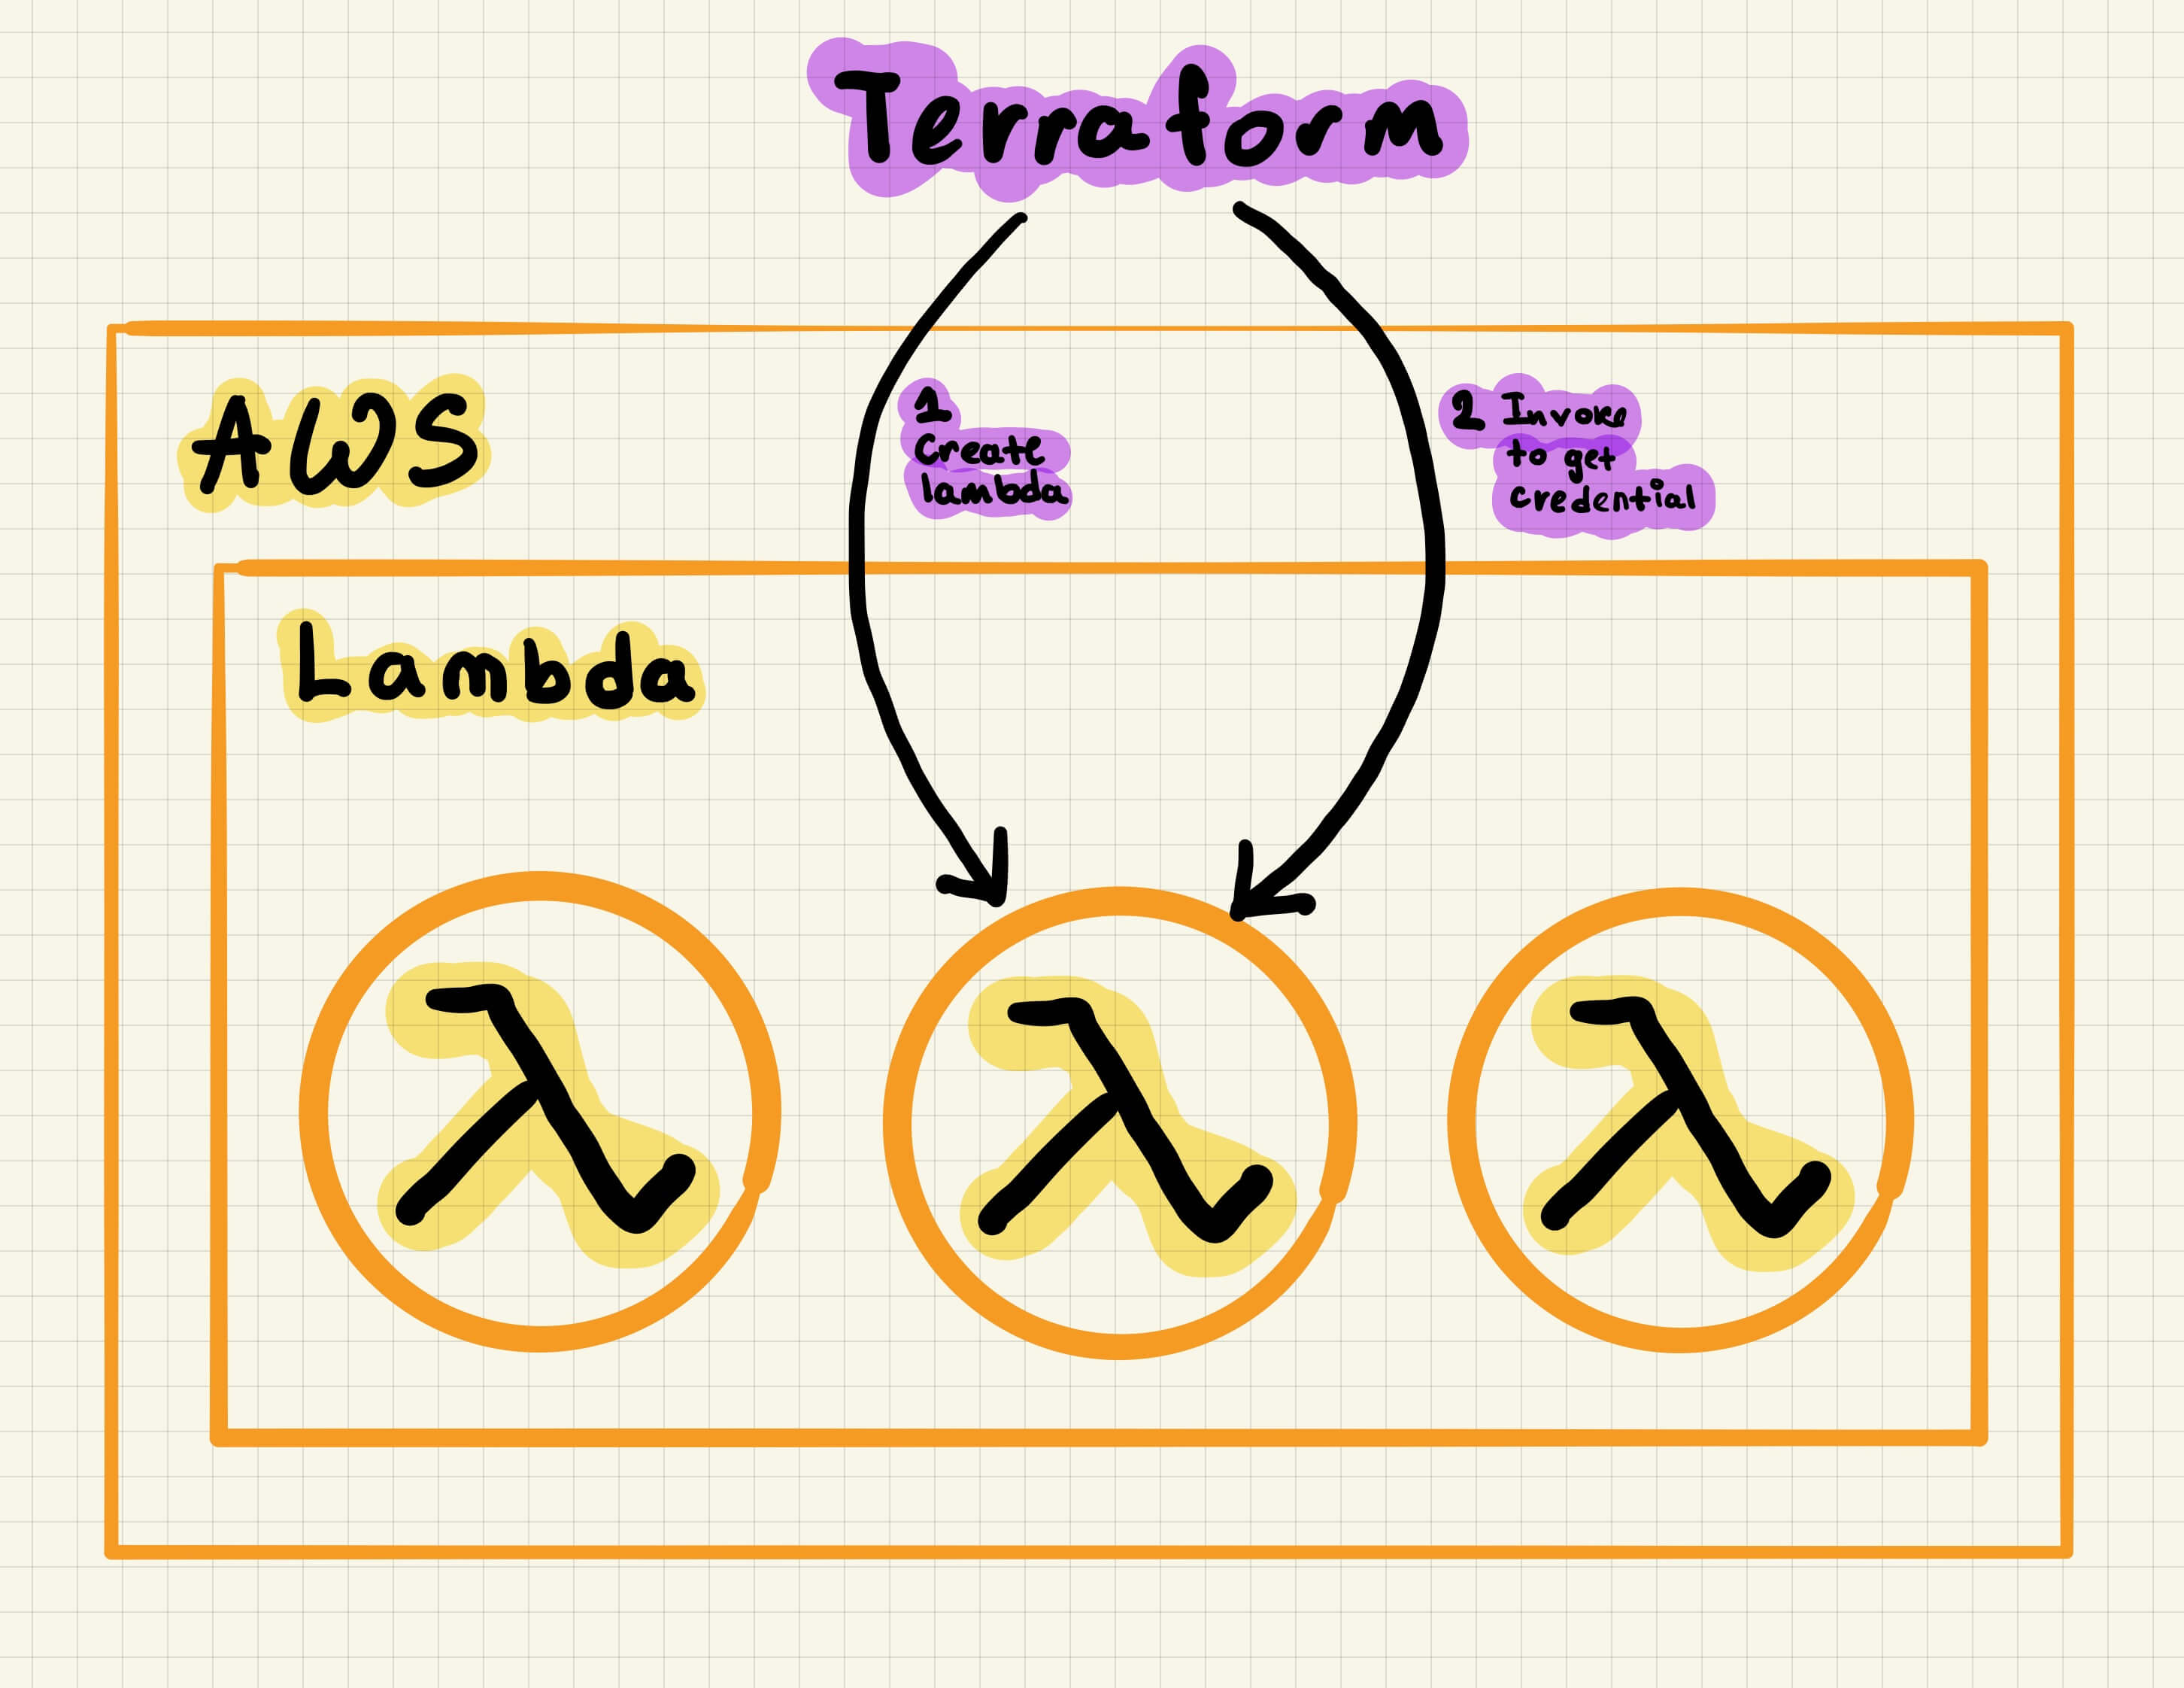 Terraform
AWS
1
Create
lambda
2 Invoke
to get
credential
Lambda
λ
λ
λ